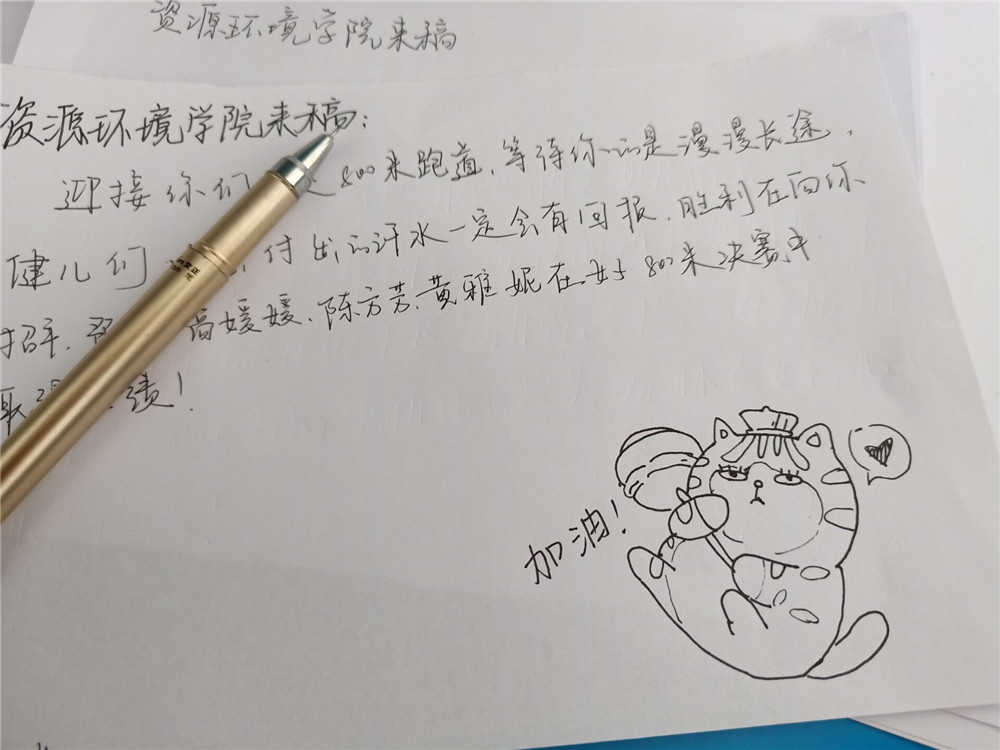 资源环境学院来稿
资源环境学院来稿:
迎接你们 800米跑道,等待你的是漫漫长途,
健儿们 付出的汗水一定会有回报,胜利在向你
招手, 高媛媛、陈方芳、黄雅妮在女子800米决赛中
取 绩!
加油!